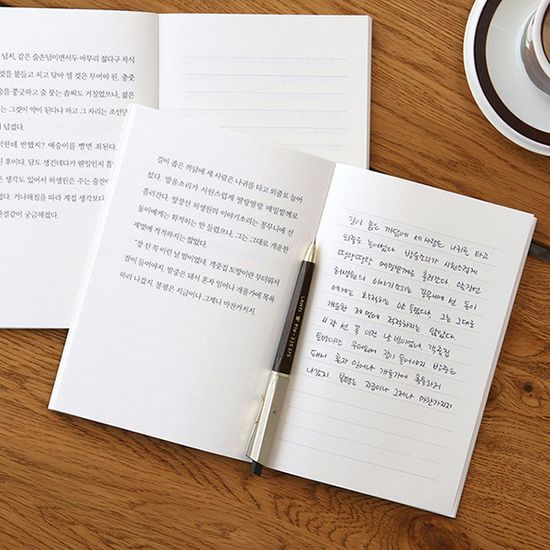 넘지, 같은 술손님이면서두 아무리 젊다구 자식
것을 붙들고 치고 닦아 셀 것은 무어야 원. 충줏
술을 쭝긋하고 술 붓는 솜씨도 거칠었으나, 젊은
는 그것이 약이 된다나 하고 그 자리는 조선달
넘겼다.
한테 반했지? 애숭이를 빨면 죄된다.
후이다. 담도 생긴데다가 웬일인지 흠
생각도 있어서 허생원은 주는 술잔이
거나해짐을 따라 계집 생각보다
한결같이 궁금해졌다.
길이 좁은 까닭에 세 사람은 나귀를 타고 외줄로 늘어
섰다. 방울소리가 시원스럽게 딸랑딸랑 메밀밭께로
흘러간다. 앞장선 허생원의 이야기소리는 꽁무니에 선
동이에게는 확적히는 안 들렸으나, 그는 그대로 개운한
제멋에 적적하지는 않았다.
"장 선 꼭 이런 날 밤이었네. 객줏집 토방이란 무더워서
잠이 들어야지. 밤중은 돼서 혼자 일어나 개울가에 목욕
하러 나갔지. 봉평은 지금이나 그제나 마찬가지지.
길이 좁은 까닭에 세 사람은 나귀를 타고
외줄로 늘어섰다. 방울소리가 시원스럽게
딸랑딸랑 메밀밭께로 흘러간다. 앞장선
허생원의 이야기소리는 꽁무니에 선 동이
에게는 확적히는 안 들렸으나, 그는 그대로
개운한 제멋에 적적하지는 않았다.
"장 선 꼭 이런 날 밤이었네. 객줏집
토방이란 무더워서 잠이 들어야지. 밤중은
돼서 혼자 일어나 개울가에 목욕하러
나갔지. 봉평은 지금이나 그제나 마찬가지지